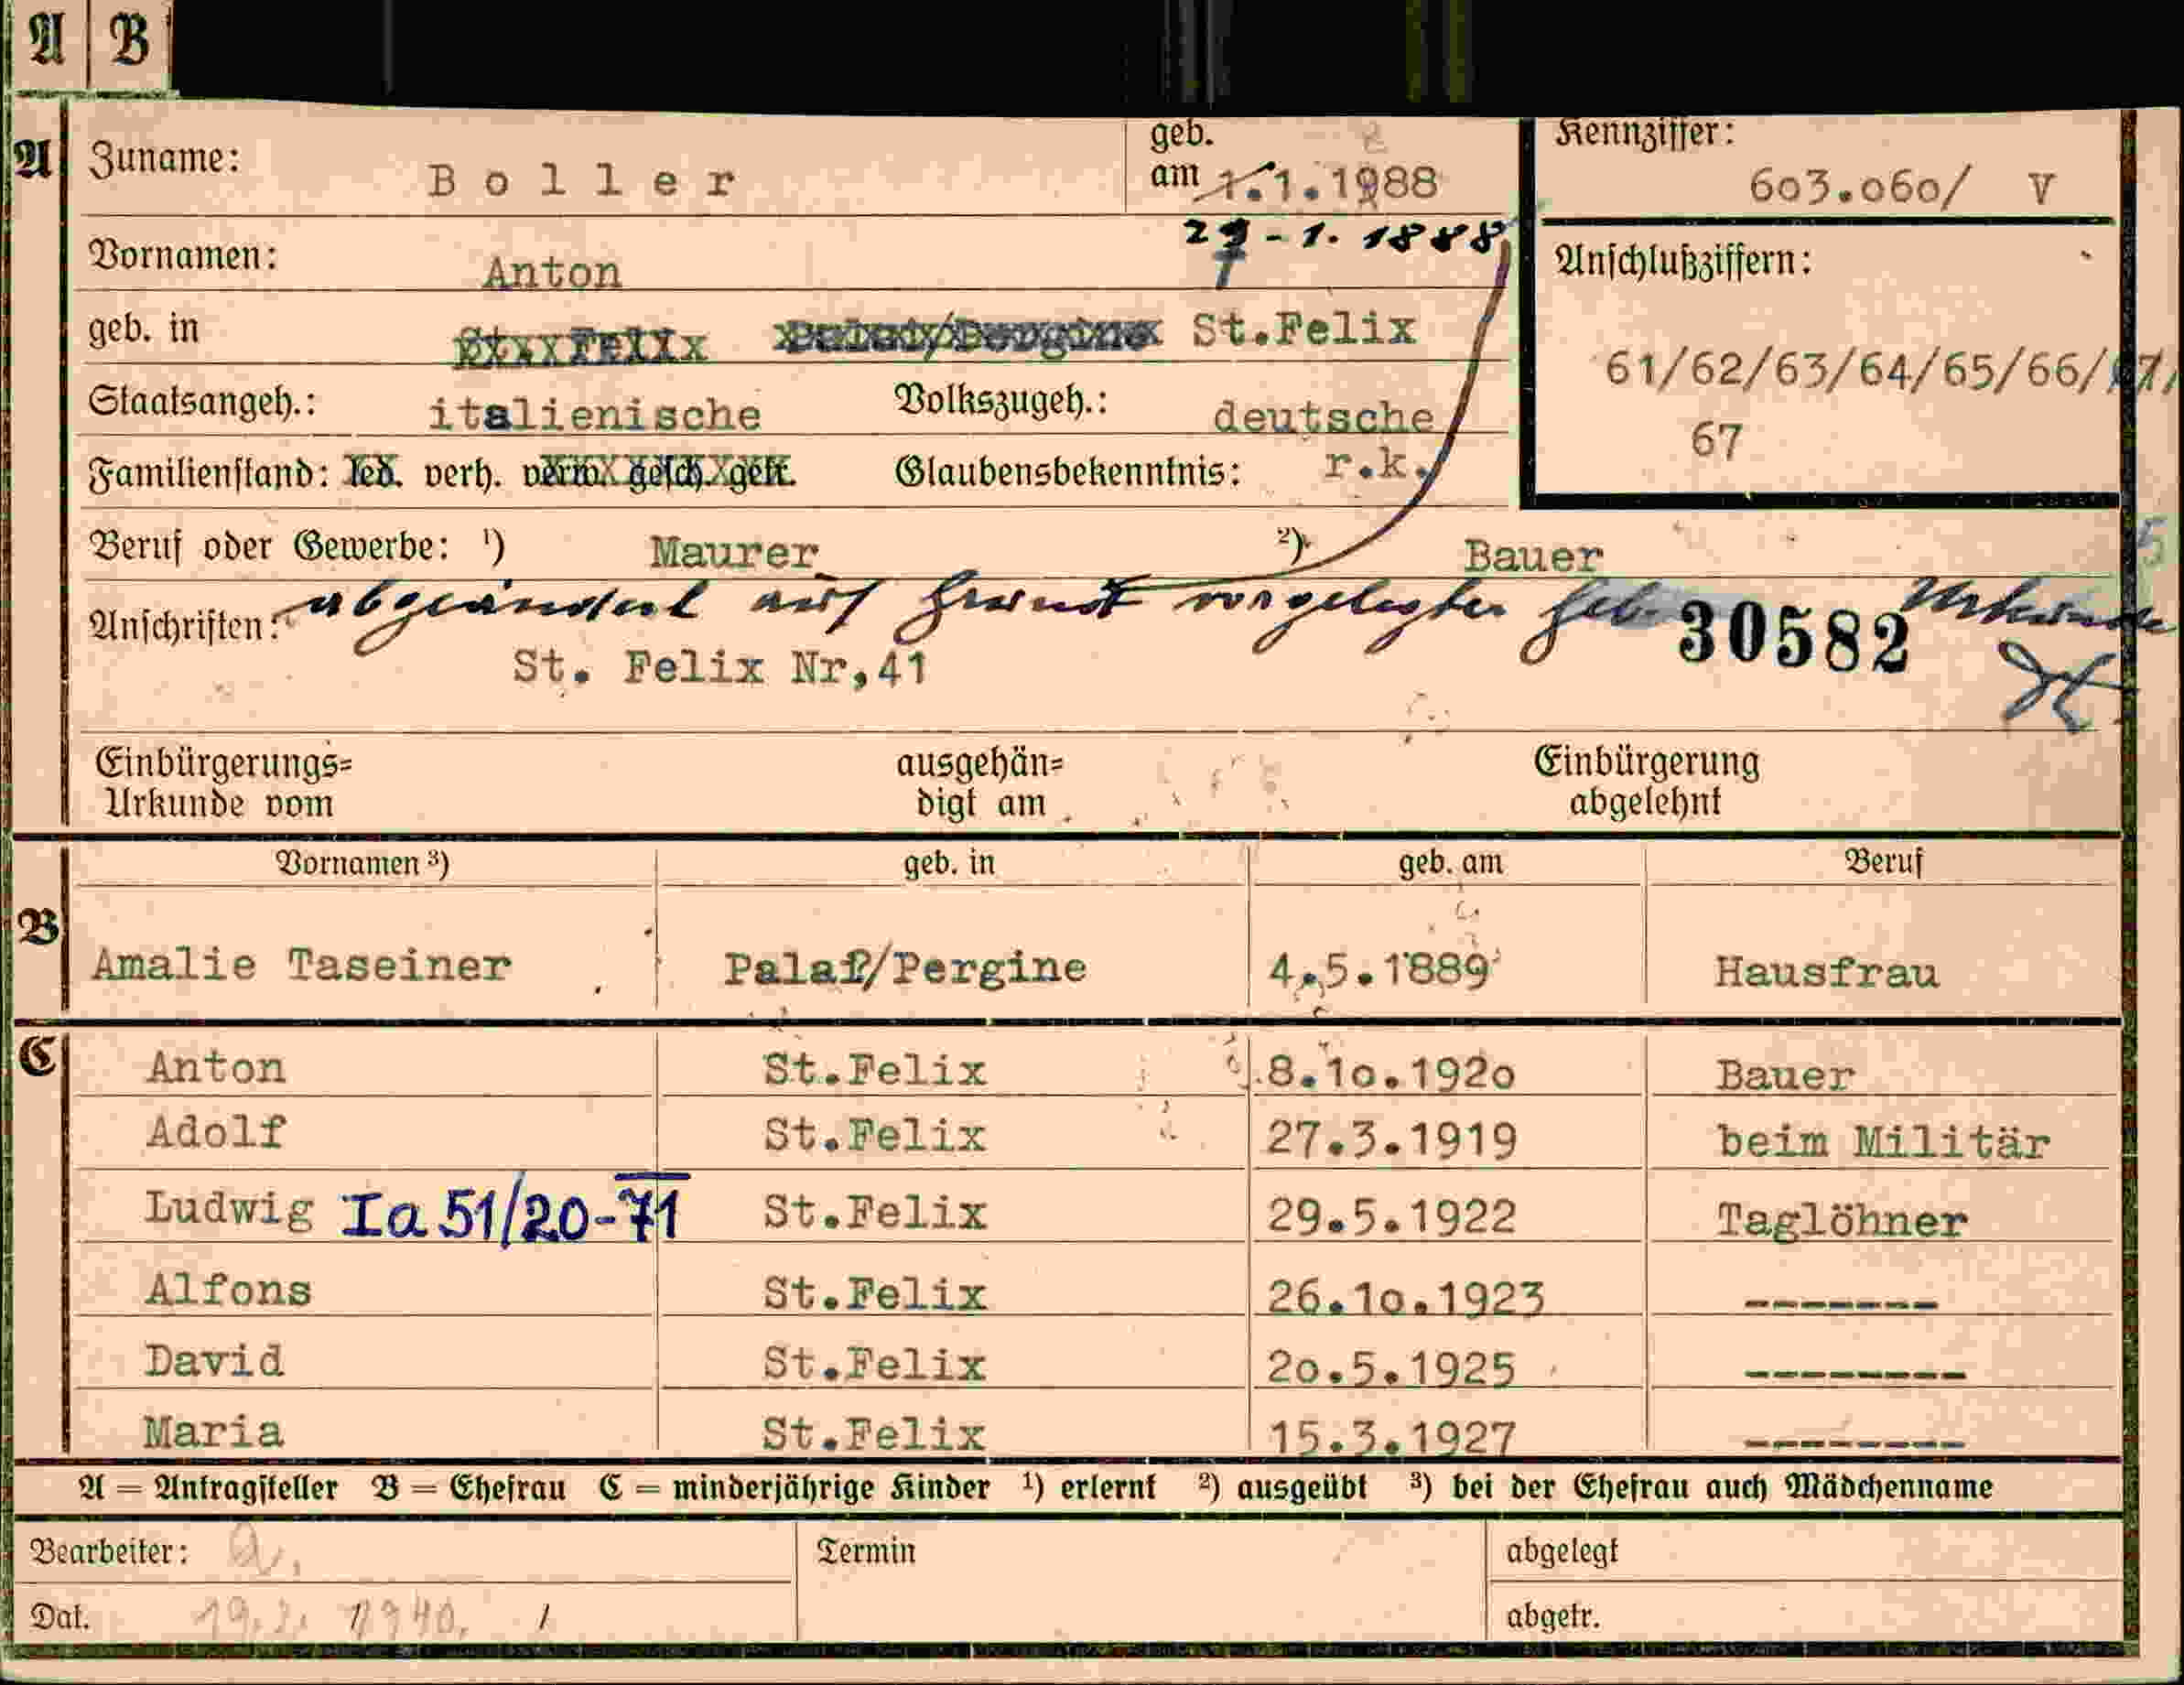 A B
A Zuname: Boller geb. am 1.1.1988 Kennziffer: 603.060/ V
Vornamen: Anton -1.1888 Anschlußziffern:
geb. in St. Felix St.Felix 61/62/63/64/65/66/
Staatsangeh.: italienische Volkszugeh.: deutsche 67
Familienstand: led. verh. verw. gesch. getr. Glaubensbekenntnis: r.k.
Beruf oder Gewerbe: ¹) Maurer ²) Bauer
abgeändert auf Grund vorgelegter Geb. Urkunde
Anschriften: 30582
St. Felix Nr,41
Einbürgerungs= Urkunde vom ausgehän= digt am Einbürgerung abgelehnt
Vornamen ³) geb. in geb. am Beruf
B Amalie Taseiner /Pergine 4.5.1889 Hausfrau
C Anton St.Felix 8.10.1920 Bauer
Adolf St.Felix 27.3.1919 beim Militär
Ludwig Ia 51/20-71 St.Felix 29.5.1922 Taglöhner
Alfons St.Felix 26.10.1923 -------
David St.Felix 20.5.1925 --------
Maria St.Felix 15.3.1927 --------
A = Antragsteller B = Ehefrau C = minderjährige Kinder ¹) erlernt ²) ausgeübt ³) bei der Ehefrau auch Mädchenname
Bearbeiter: Termin abgelegt
Dat. 19.2. 1940. abgetr.